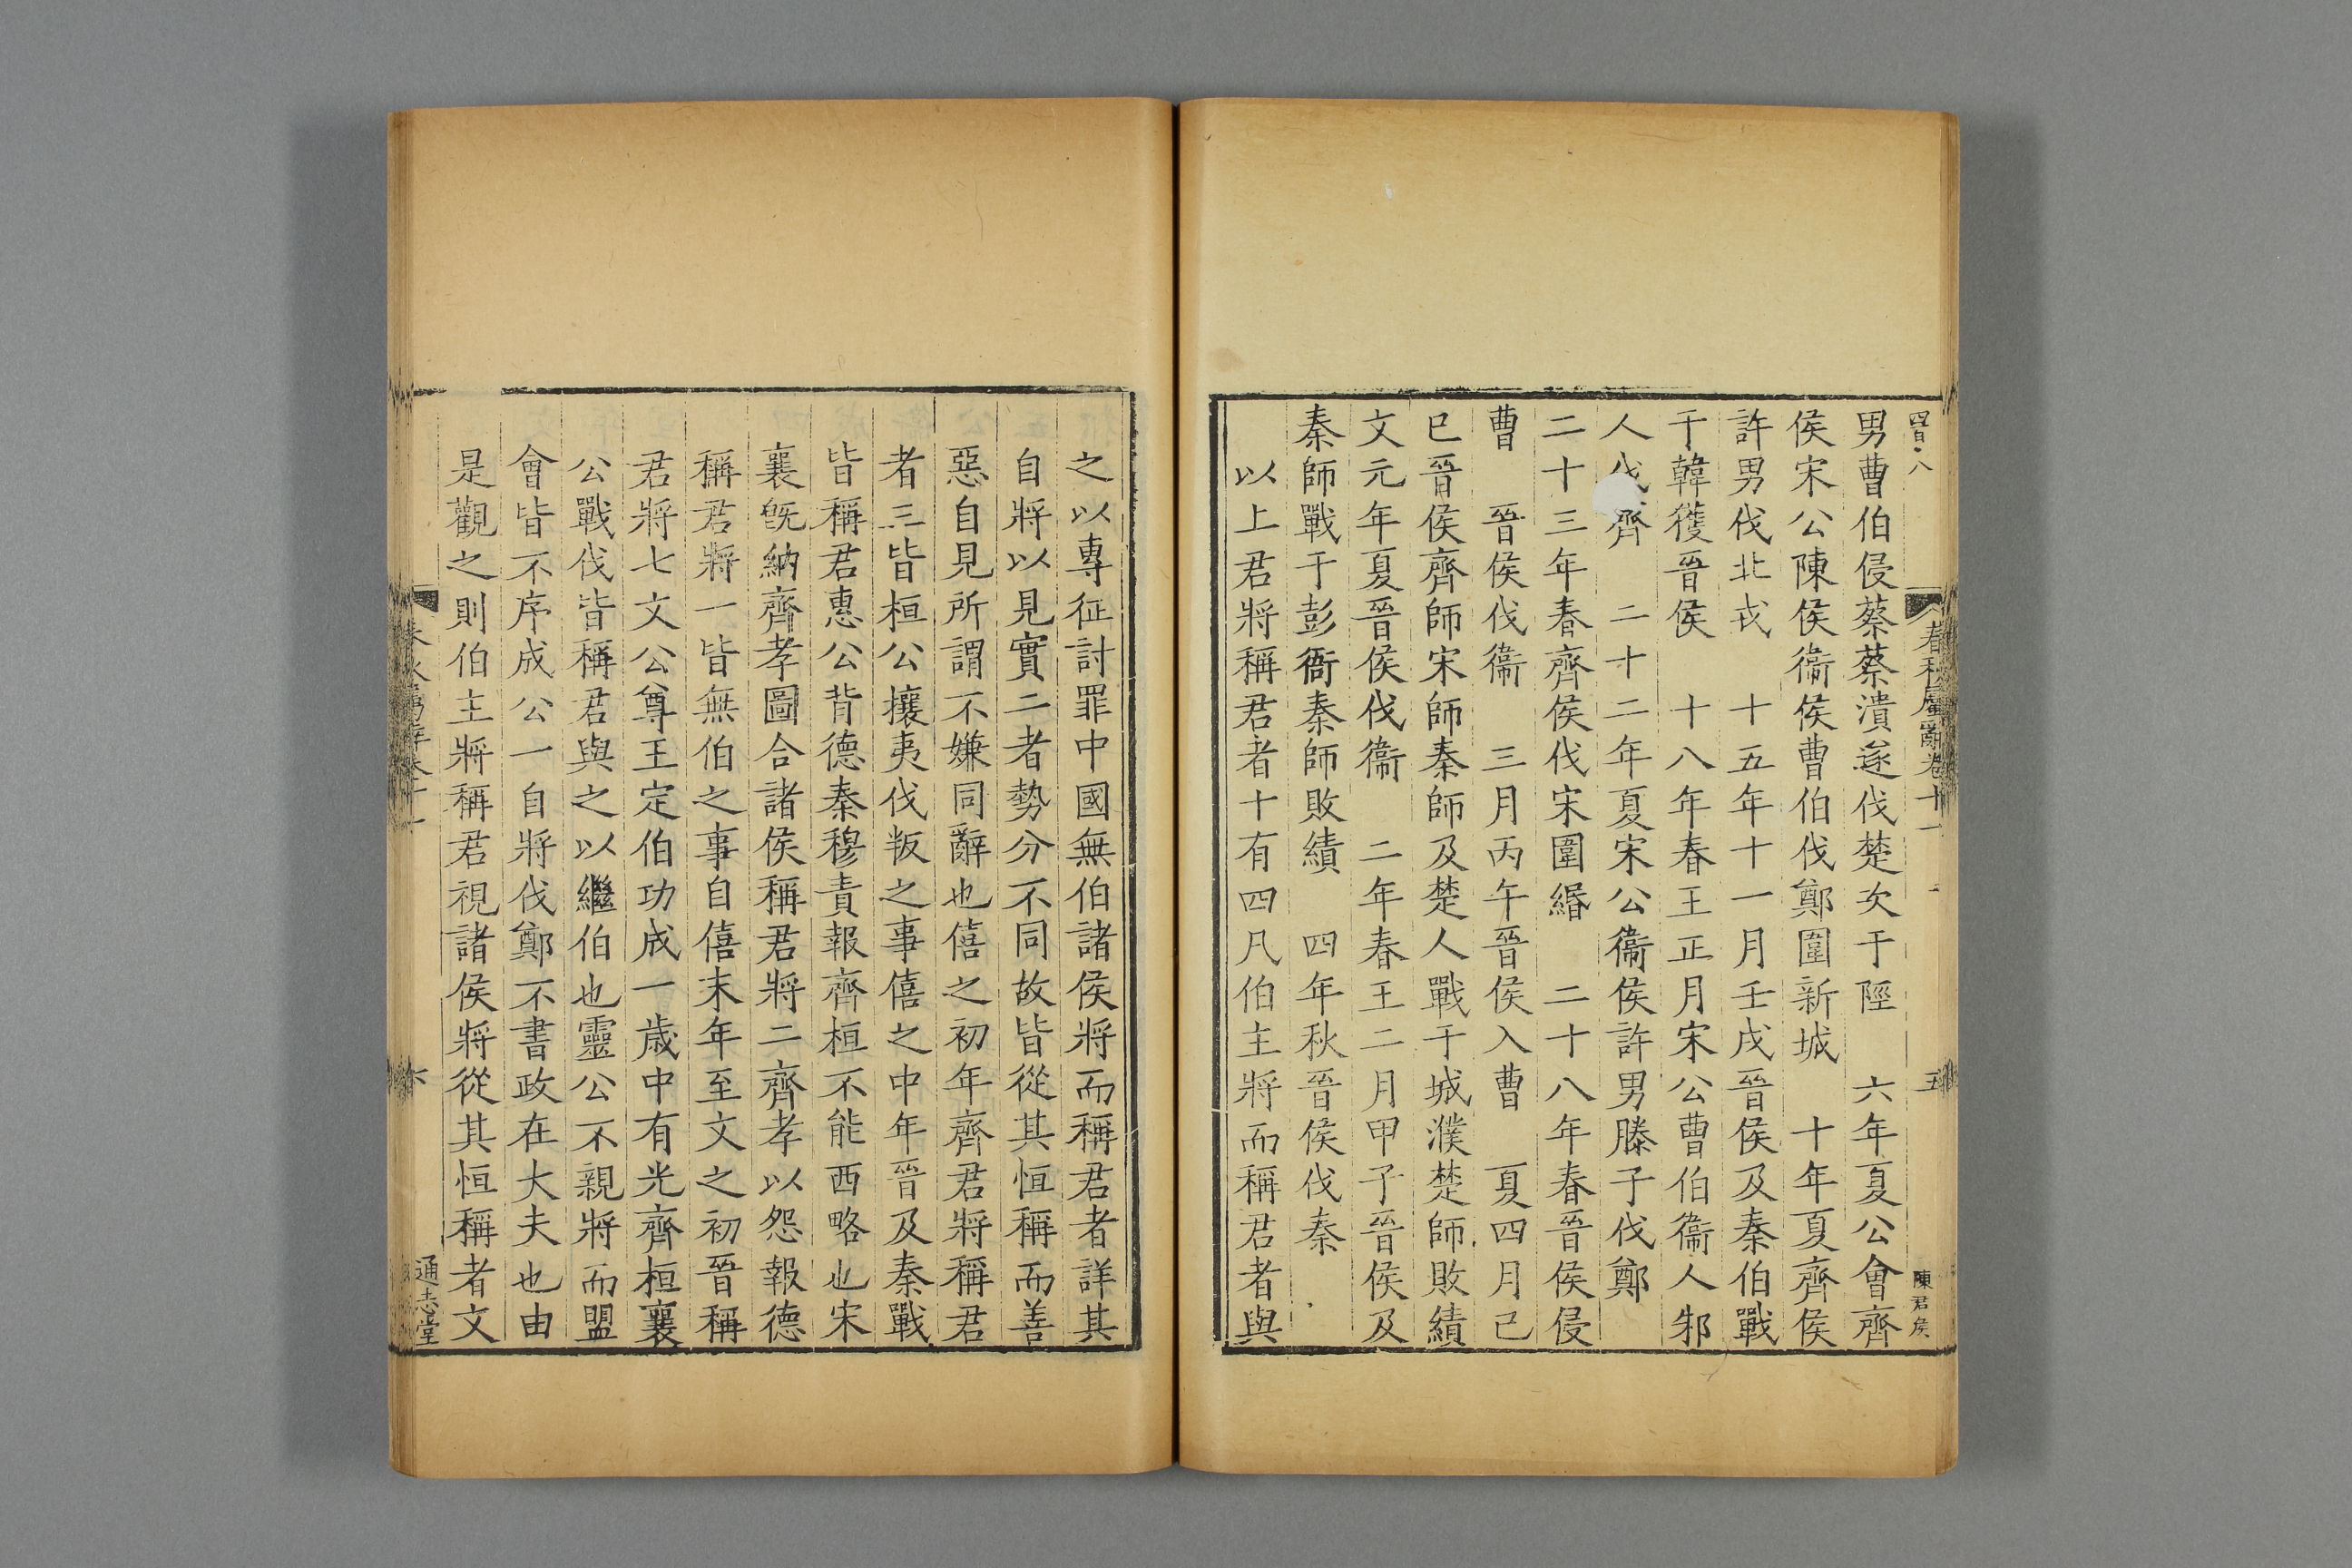 四百八
春秋屬辭卷十一
五
陳君侯
男曹伯侵蔡蔡潰遂伐楚次于陘　六年夏公會齊
侯宋公陳侯衞侯曹伯伐鄭圍新城　十年夏齊侯
許男伐北戎　十五年十一月壬戌晉侯及秦伯戰
于韓獲晉侯　十八年春王正月宋公曹伯衞人邾
人伐齊　二十二年夏宋公衞侯許男滕子伐鄭
二十三年春齊侯伐宋圍緡　二十八年春晉侯侵
曹　晉侯伐衞　三月丙午晉侯入曹　夏四月己
巳晉侯齊師宋師秦師及楚人戰于城濮楚師敗績
文元年夏晉侯伐衞　二年春王二月甲子晉侯及
秦師戰于彭衙秦師敗績　四年秋晉侯伐秦
以上君將稱君者十有四凡伯主將而稱君者與
之以專征討罪中國無伯諸侯將而稱君者詳其
自將以見實二者勢分不同故皆從其恒稱而善
惡自見所謂不嫌同辭也僖之初年齊君將稱君
者三皆桓公攘夷伐叛之事僖之中年晉及秦戰
皆稱君惠公背德秦穆責報齊桓不能西略也宋
襄旣納齊孝圖合諸侯稱君將二齊孝以怨報德
稱君將一皆無伯之事自僖末年至文之初晉稱
君將七文公尊王定伯功成一歲中有光齊桓襄
公戰伐皆稱君與之以繼伯也靈公不親將而盟
會皆不序成公一自將伐鄭不書政在大夫也由
是觀之則伯主將稱君視諸侯將從其恒稱者文
春秋屬辭卷十一
六
通志堂